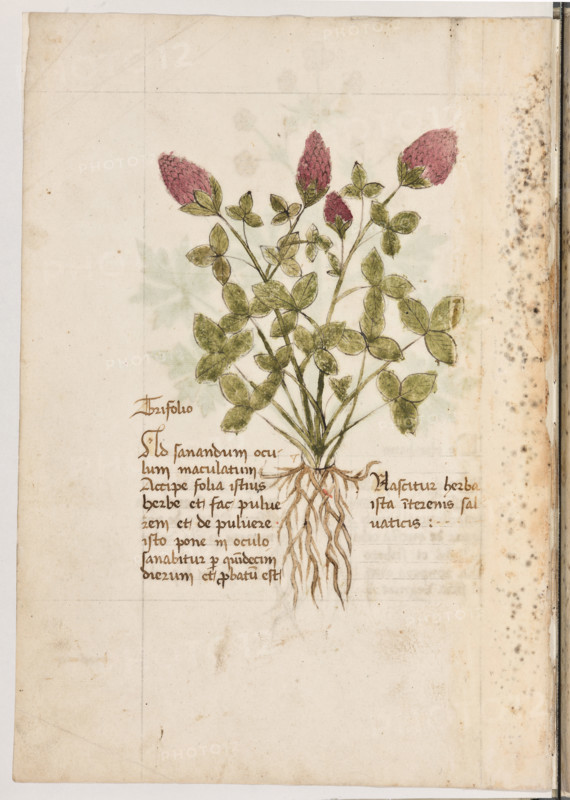 Trifolio
Ad sanandum ocu
lum maculatum
Accipe folia istius
herbe et fac pulue
rem et de puluere
isto pone in oculo
sanabitur p qūdecim
dierum et ꝓbatū est
Nascitur herba
ista ī terenis sal
uaticis :